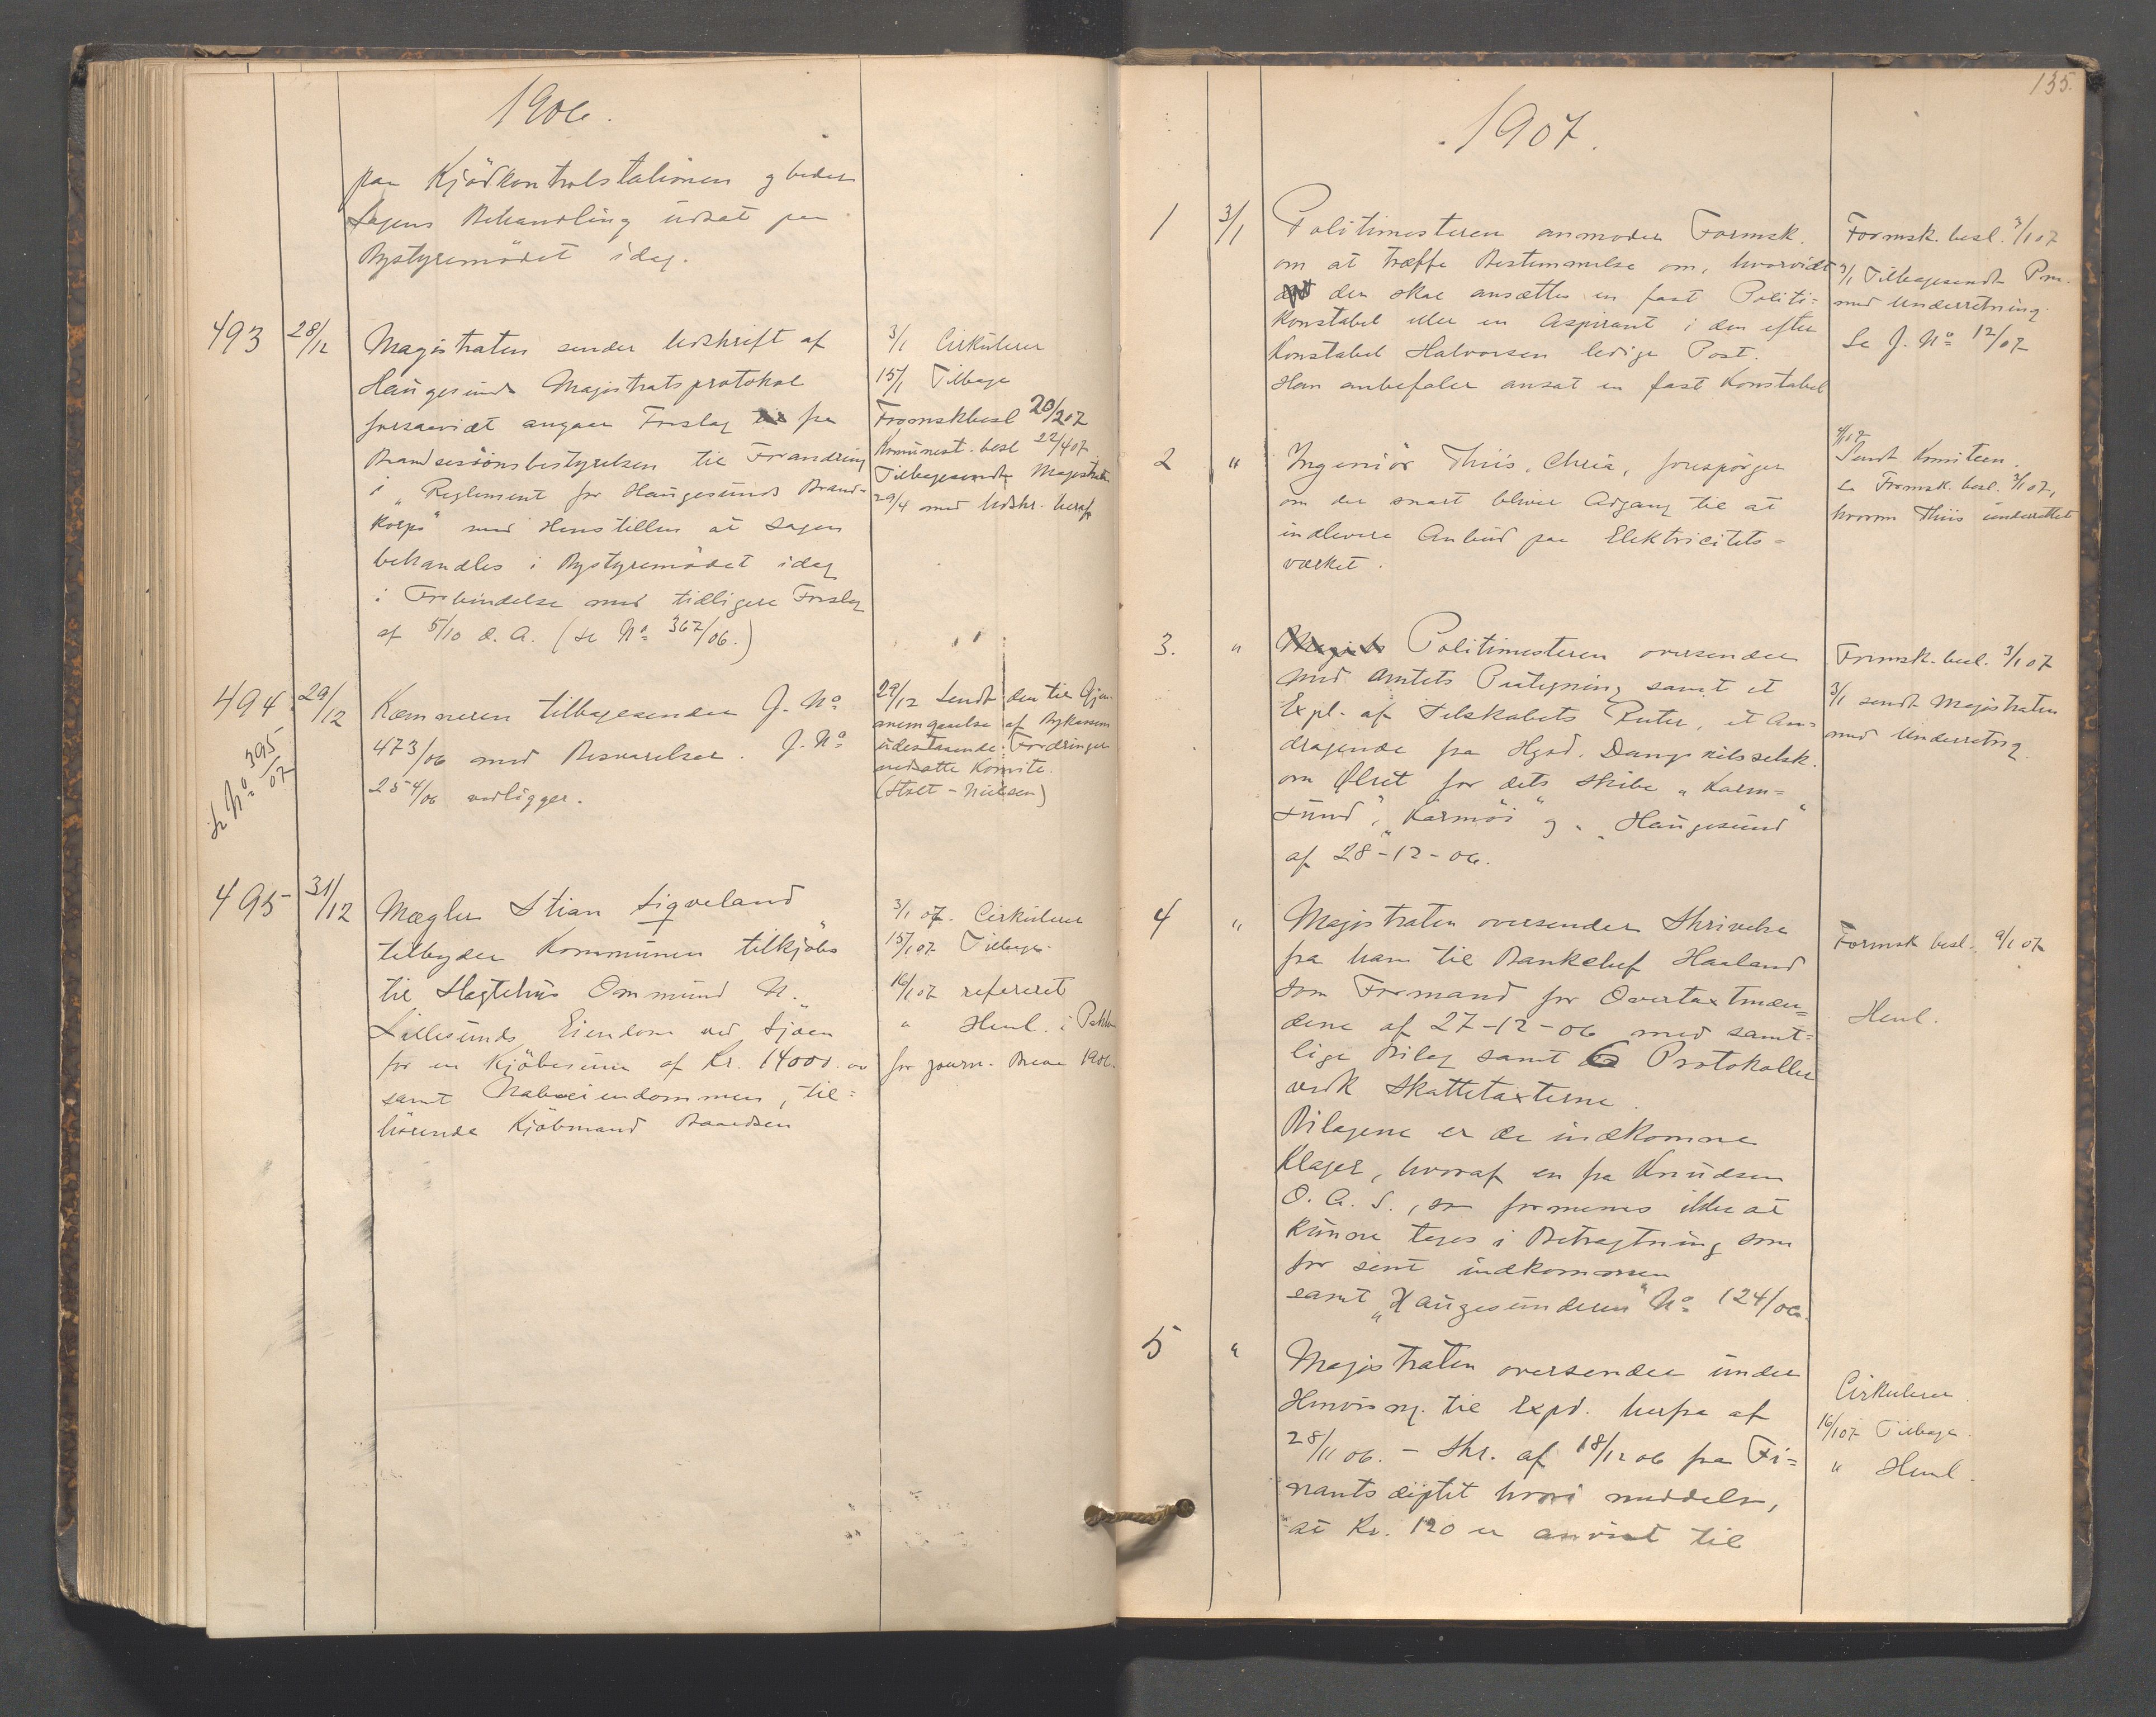 1906.
paa Kjödkontrolstationen og beder
Sagens Behandling udsat paa
Bystyremödet idag.
493 28/12 Magistraten sender Udskrift af
Haugesunds Magistratsprotokol
forsaavidt angaar Forslag fra
Brandsessionsbestyrelsen til Forandring
i "Reglement for Haugesunds Brand-
korps" med Henstillen at Sagen
behandles i Bystyremödet idag
i Forbindelse med tidligere Forslag
af 5/10 d. A. (se No 367/06.)
3/1 Cirkulerer
15/1 Tilbage
Formskbesl 20/2 07
Komunest. besl 22/4 07
Tilbagesendt Magistraten
29/4 med Udskr. heraf
494 29/12 Kæmneren tilbagesender J. No
473/06 med Besvarelser. J. No
254/06 vedligger.
se No 395/07
29/12 Sendt den til Gjen-
nemgaaelse af Bykassens
udestaaende Fordringer
nedsatte Komite.
(Stolt-Nielsen)
495 31/12 Mægler Stian Sigveland
tilbyder Kommunen tilkjöbs
til Slagtehus Ommund N.
Lillesunds Eiendom ved Sjöen
for en Kjöbesum af Kr. 14000.00
samt Naboeiendommen, til=
hörende Kjöbmand Baardsen
3/1 07. Cirkulerer
15/1 07 Tilbage.
16/1 07 refereret
" Henl. i Pakke
for journ. Breve 1906.
135.
1907.
1 3/1 Politimesteren anmoder Formsk.
om at træffe Bestemmelse om, hvorvidt
der skal ansættes en fast Politi=
konstabel eller en Aspirant i den efter
Konstabel Halvorsen ledige Post.
Han anbefaler ansat en fast Konstabel
Formsk. besl. 3/1 07
3/1 Tilbagesendt Pm.
med Underretning.
Se J. No 12/07
2 " Ingeniör Thiis, Chria, forespörger
om der snart bliver Adgang til at
indlevere Anbud paa Elektricitets=
værket.
Sendt Komiteen.
se Formsk. besl. 3/1 07,
hvorom Thiis underrettet
3. " Politimesteren oversender
med Amtets Paategning samt et
Expl. af Selskabets Ruter, et An=
dragende fra Hgsd. Dampskibsselsk.
om Ölret for dets Skibe "Karm=
sund", "Karmöi" og "Haugesund"
af 28-12-06.
Formsk. besl. 3/1 07
3/1 sendt Magistraten
med Underretng
4 " Magistraten oversender Skrivelse
fra ham til Bankchef Haaland
som Formand for Overtaxtmæn=
dene af 27-12-06 med samt=
lige Bilag samt 6 Protokoller
vedk Skattetaxterne.
Bilagene er de indkomne
Klager, hvoraf en fra Knudsen
O. A. S., som formenes ikke at
kunne tages i Betragtning som
for sent indkommen
samt "Haugesunderen" No 124/06.
Formsk besl. 9/1 07
Henl.
5 " Magistraten oversender under
Henvisng. til Expd. herfra af
28/11 06. - Skr. af 18/12 06 fra Fi=
nantsdeptet hvori meddeles,
at Kr. 120 er anvist til
Cirkulerer
16/1 07 Tilbage.
" Henl.